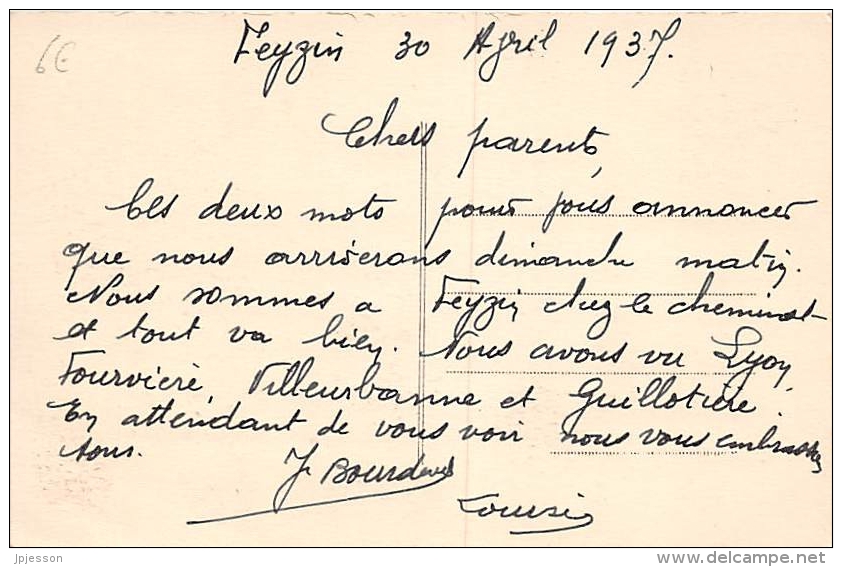 6€
Feyzin 30 Avril 1937.
Chers parents,
Ces deux mots pour vous annoncer
que nous arriverons dimanche matin.
Nous sommes a Feyzin chez le cheminot
et tout va bien. Nous avons vu Lyon,
Fourvière, Villeurbanne et Guillotière.
En attendant de vous voir nous vous embrassons
tous.
J Bourdeves
Louise
jpjesson
www.delcampe.net